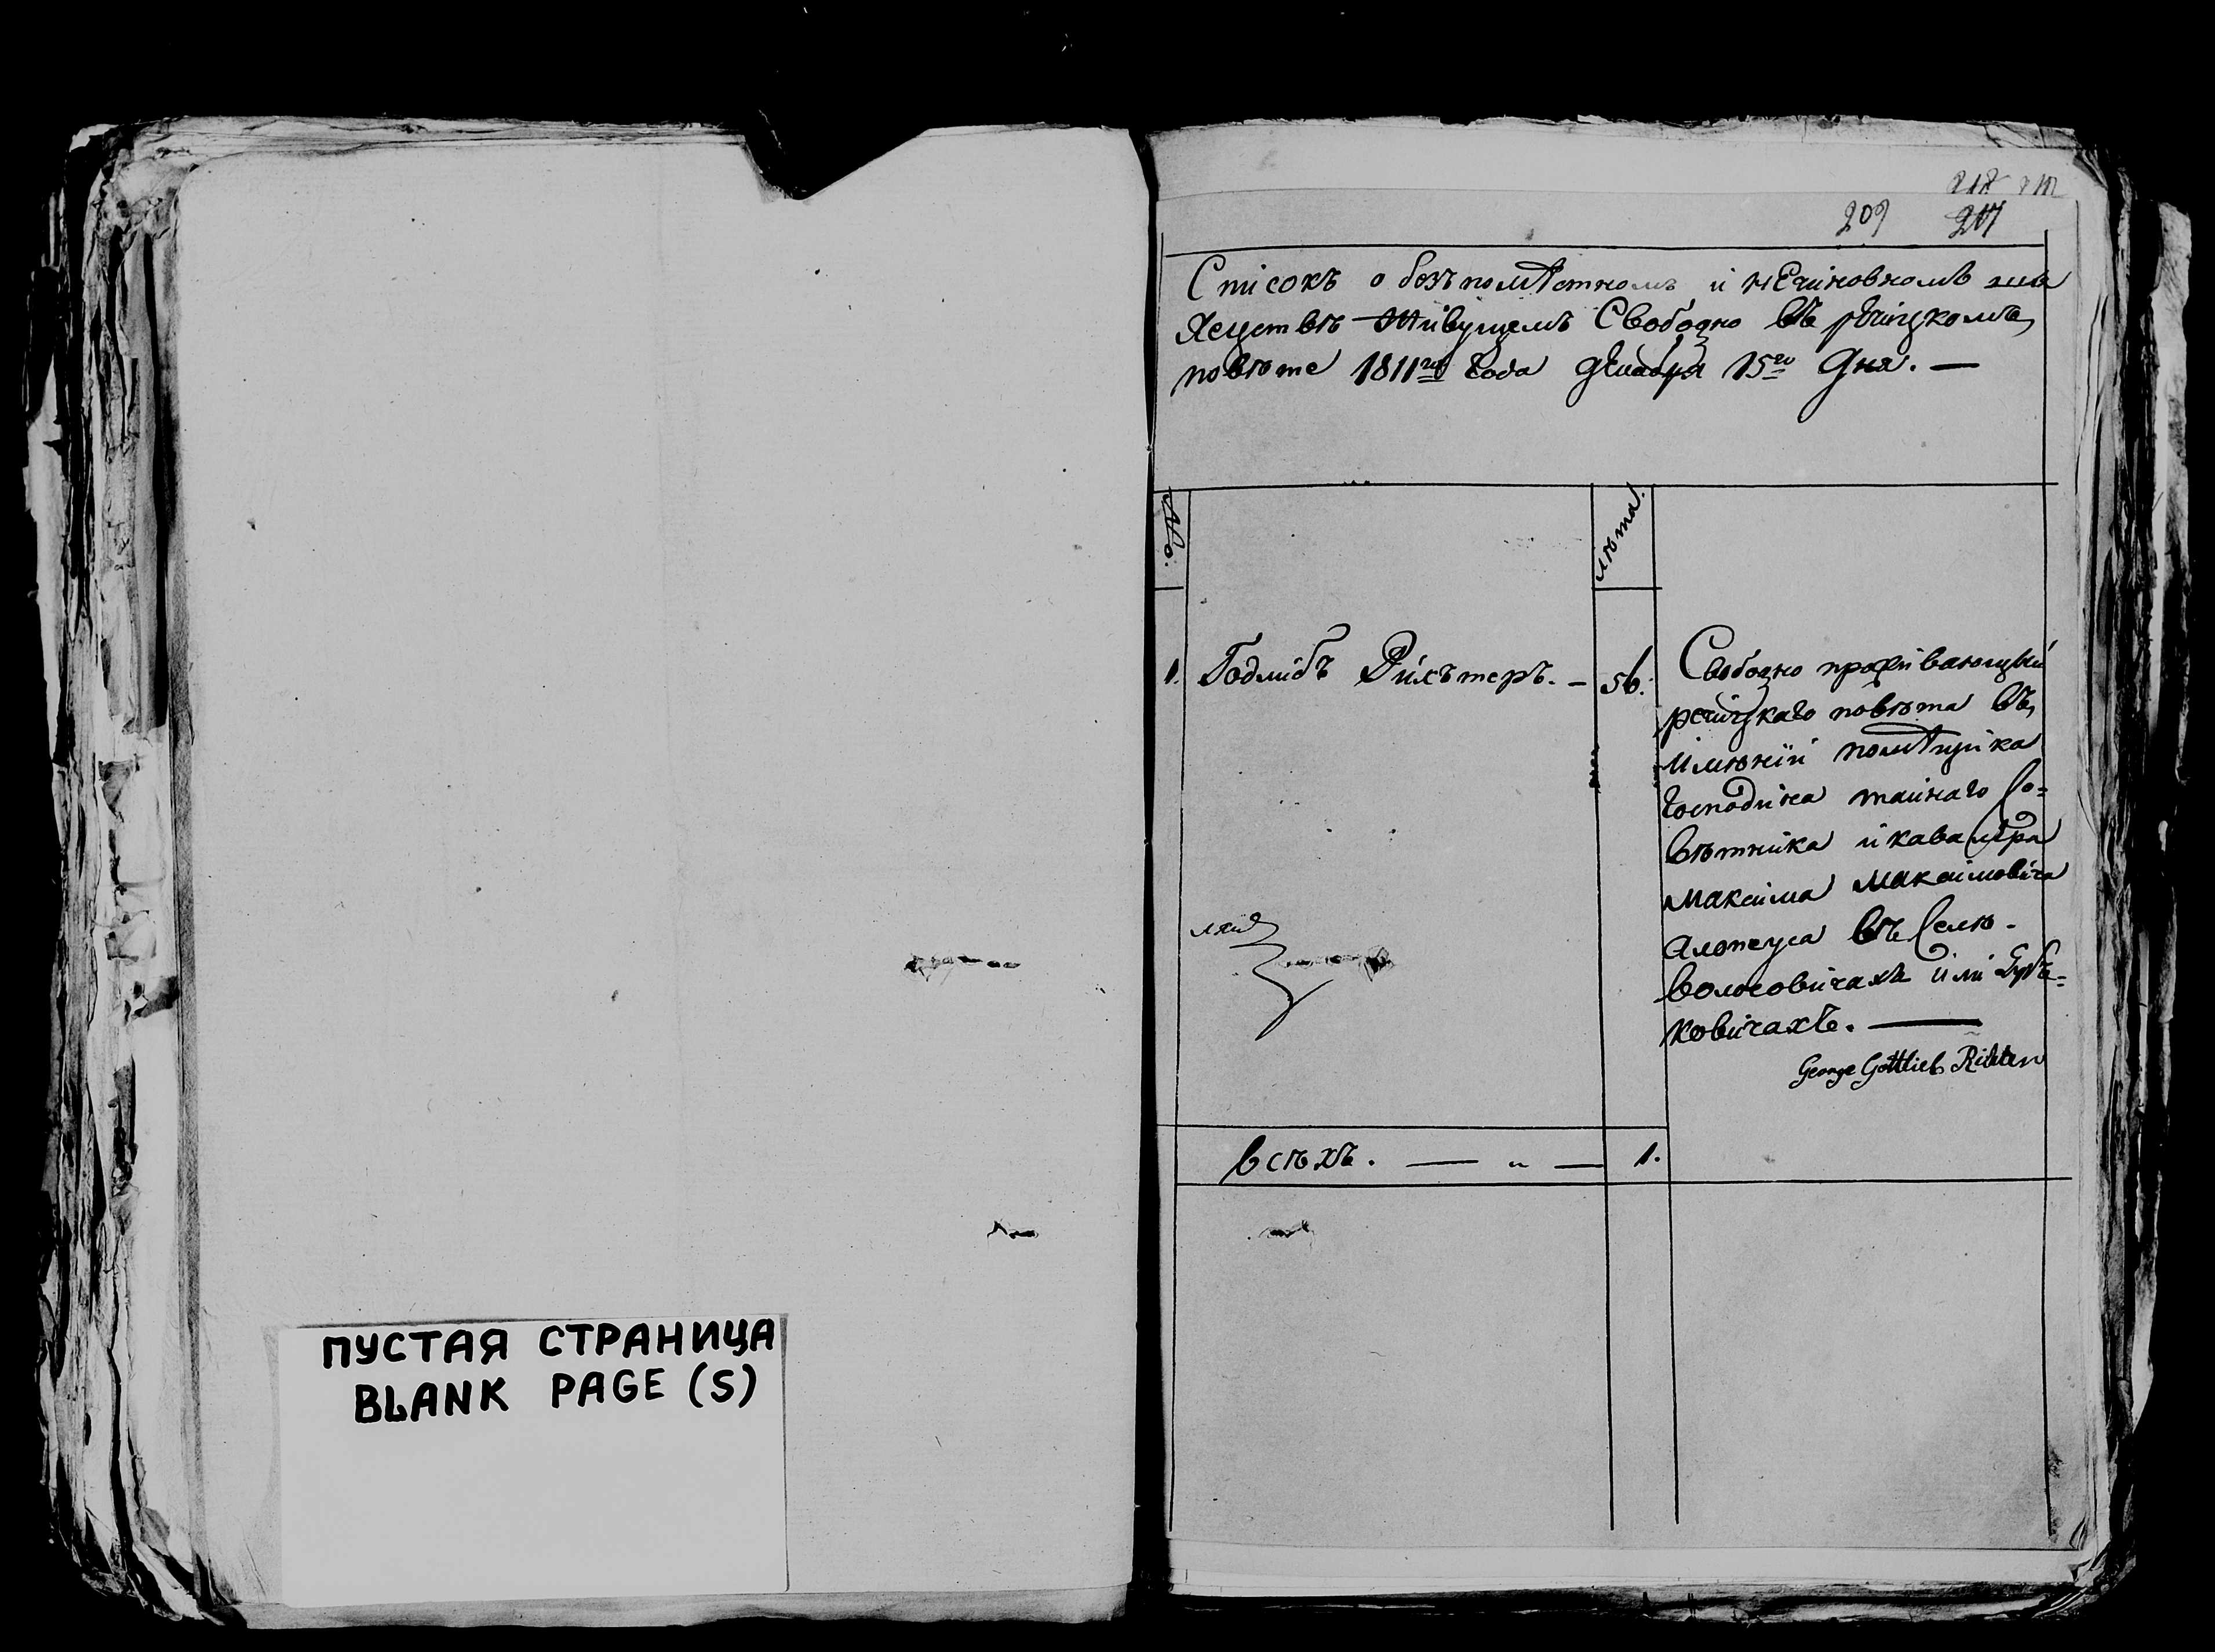 ПУСТАЯ СТРАНИЦА
BLANK PAGE (S)
209 217
Списокъ о безъпомѣстномъ и нечиновномъ шля
хецствѣ живущемъ Свободно въ рѣчицкомъ
повѣте 1811го года декабря 15го дня. —
№.
лѣта.
1. Годлибъ Рихътеръ. — 56.
Свободно проживающый
речицкаго повѣта въ
имѣнии помѣщика
господина тайнаго со=
вѣтника и кавалера
Максима Максимовича
Алопеуса въ селѣ
Волосовичахъ или
ковичахъ. —
George Gottlieb Richter
всѣхъ. — „ — 1.